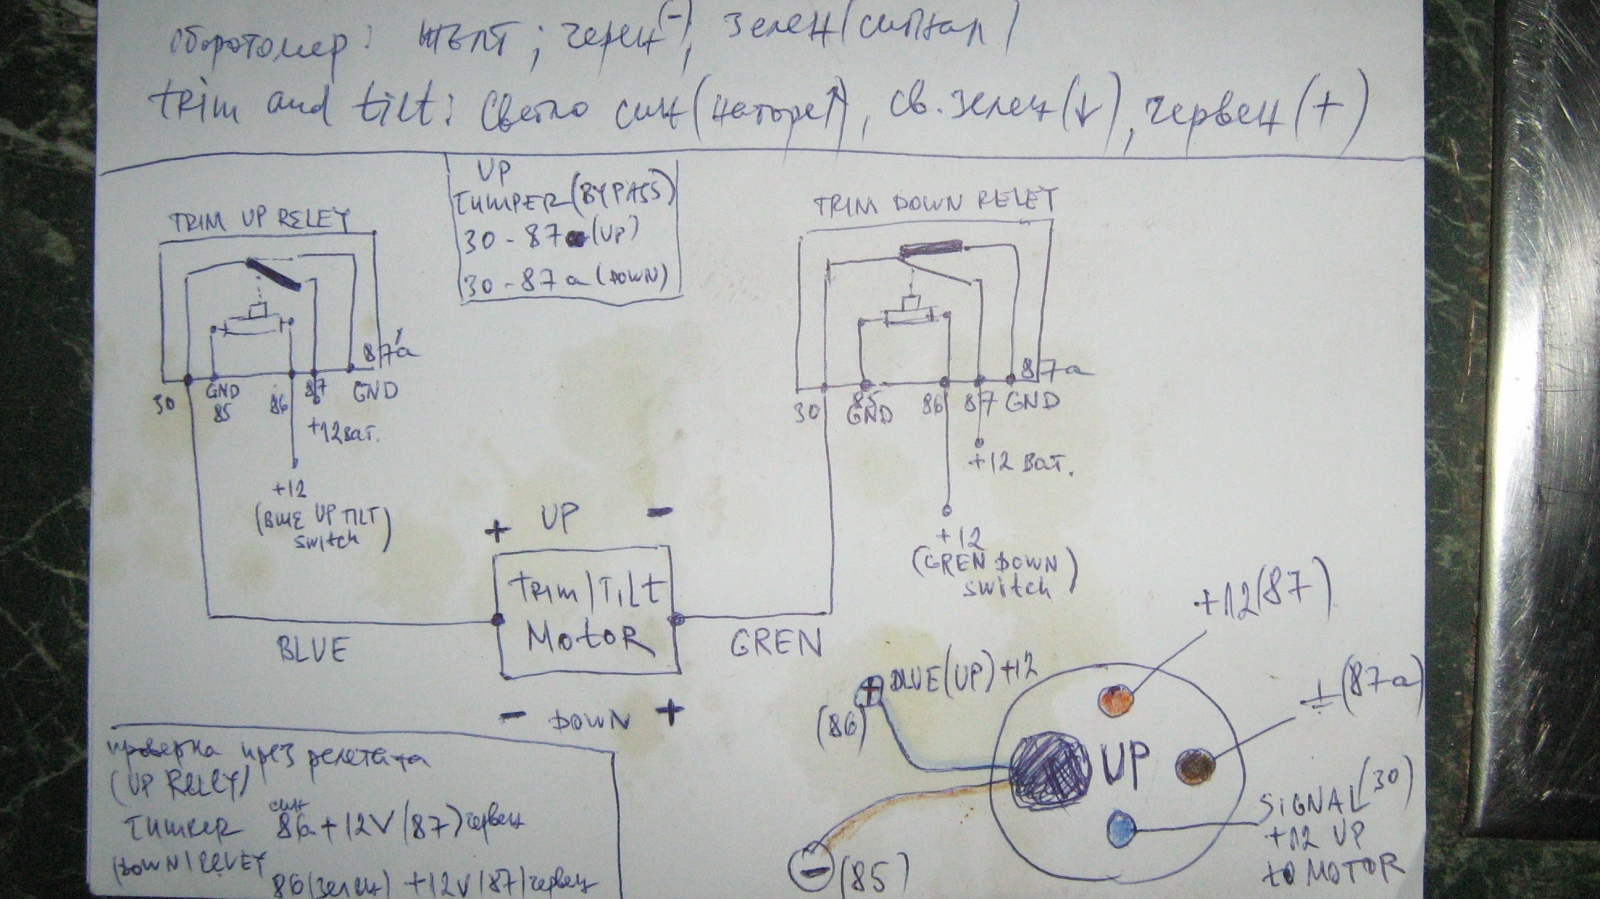 оборотомер: жълт; черен(-), зелен(сигнал)
trim and tilt: светло син(нагоре↑), св. зелен(↓), червен(+)
UP
JUMPER(BYPASS)
30-87 (UP)
30-87a (DOWN)
TRIM UP RELEY
TRIM DOWN RELEY
87a
30
GND
85
86
87
GND
+12 BAT.
+12
(BLUE UP TILT
switch)
87a
30
85
GND
86
87
GND
+12 BAT.
+12
(GREN DOWN)
switch
+ UP -
TRIM/TILT
MOTOR
BLUE
GREN
- DOWN +
+12(87)
⏚(87a)
+ BLUE(UP)+12
(86)
UP
SIGNAL(30)
+12 UP
to MOTOR
- (85)
проверка чрез релетата
(UP RELEY)
син
JUMPER 86 +12V(87)червен
(DOWN) RELEY
86(зелен) +12V(87)червен